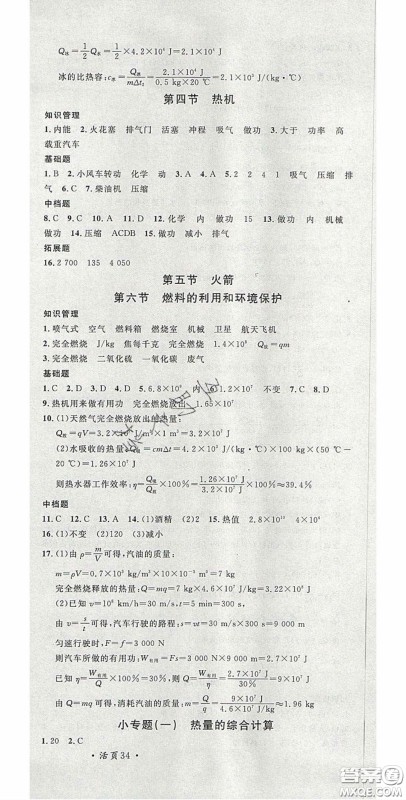 Q冰=1/2 Q水=1/2×4.2×10⁴ J=2.1×10⁴ J
冰的比热容:c冰=Q冰/mΔt₂=2.1×10⁴ J/0.5 kg×20 ℃=2.1×10³ J/(kg·℃)
第四节 热机
知识管理
1.内能 2.火花塞 排气门 活塞 冲程 吸气 做功 3.大于 功率 高
载重汽车
基础题
1.B 2.小风车转动 化学 动 3.A 4.A 5.2 2 4 1 吸气 压缩 排
气 6.C 7.柴油机 压缩
中档题
8.C 9.C 10.A 11.D 12.化学 内 做功 13.做功 内 机械
做功 14.压缩 ACDB 15.做功 减小 排气
拓展题
16.2 700 135 4 050
第五节 火箭
第六节 燃料的利用和环境保护
知识管理
1.喷气式 空气 燃料箱 燃烧室 机械 卫星 航天飞机
2.完全燃烧 J/kg 焦每千克 完全燃烧 Q=qm
3.完全燃烧 二氧化硫 一氧化碳 三废
基础题
1.C 2.D 3.A 4.D 5.6.8×10⁴ 内 6.C 7.C 8.D
9.热机用来做有用功 完全燃烧放出 1.65×10⁷
10.(1)天然气完全燃烧放出的热量:
Q放=qV=3.2×10⁷ J
(2)水吸收的热量:Q吸=cmΔt=4.2×10³ J/(kg·℃)×100 kg×(50℃-
20℃)=1.26×10⁷ J
则热水器工作效率:η=Q吸/Q放×100%=1.26×10⁷ J/3.2×10⁷ J×100%≈39.4%
中档题
11.C 12.C 13.A 14.(1)酒精 (2)2 15.热值 2.8×10¹¹ 4×10⁴
16.(1)不变 (2)120 (3)减小
17.(1)由ρ=m/V可得,汽油的质量:
m=ρV=0.7×10³ kg/m³×10×10⁻³ m³=7 kg
完全燃烧产生的热量:Q=mq=7 kg×4.6×10⁷ J/kg=3.22×10⁸ J
(2)已知v=108 km/h=30 m/s,t=5 min=300 s
由v=s/t可得,汽车行驶的路程:s=vt=30 m/s×300 s=9 000 m
匀速行驶时,F=f=3 000 N
则汽车所做的有用功:W有用=Fs=3 000 N×9 000 m=2.7×10⁷ J
已知η=W有用/Q×100%,则Q=W有用/η=2.7×10⁷ J/30%=9×10⁷ J
由Q=mq可得,消耗汽油的质量:m=Q/q=9×10⁷ J/4.6×10⁷ J/kg≈1.96 kg
小专题(一) 热量的综合计算
1.20 2.C
·活页34·
答案圈
MXQE.COM